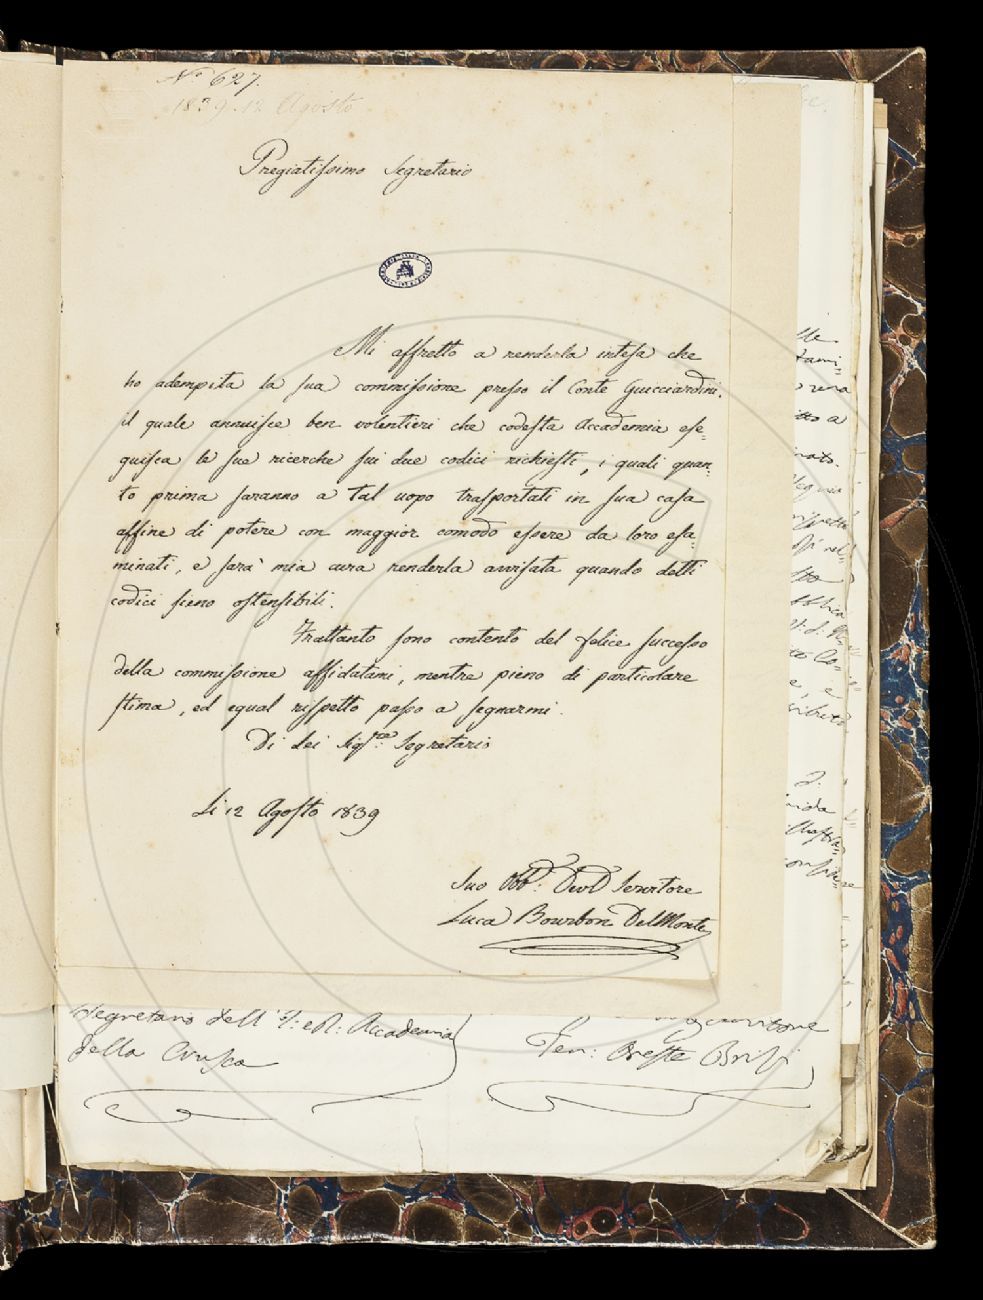 N.° 627.
1839. 12 Agosto
Pregiatissimo Segretario
Mi affretto a renderla intesa che
ho adempita la sua commissione presso il Conte Guicciardini.
il quale annuisce ben volentieri che codesta Accademia ese-
guisca le sue ricerche sui due codici richiesti, i quali quan-
to prima saranno a tal uopo trasportati in sua casa
affine di potere con maggior comodo essere da loro esa-
minati, e sarà mia cura renderla avvisata quando detti
codici sieno ostensibili.
Frattanto sono contento del felice successo
della commissione affidatami, mentre pieno di particolare
stima, ed egual rispetto passo a segnarmi.
Di Lei Sig.re Segretario
Li 12 Agosto 1839
Suo Obb. Dev. Servitore
Luca Bourbon DelMonte
Segretario dell' I: e R: Accademia
della Crusca
Ten: Oreste Brizi